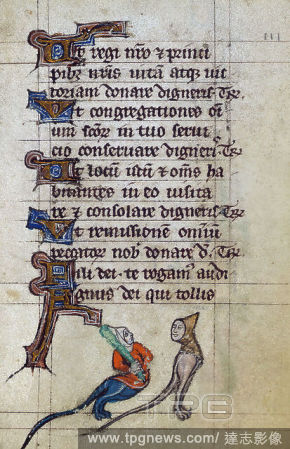 Ut regi nr̄o & princi
pibꝫ nr̄is uitā atqꝫ uic
toriam donare digneris. Te r̄
Ut congregationes oī
um sc̄oꝝ in tuo serui
cio conseruare digneri. Te r̄
Ut locum istū & om̄s ha
bitantes in eo uisita
re & consolare digneris. Te r̄
Ut remissionē omniū
peccatoꝝ nob donare d̄. Te r̄
Fili dei. te rogamꝰ audi
Agnus dei qui tollis
TPG
www.tpgnews.com/ 達志影像